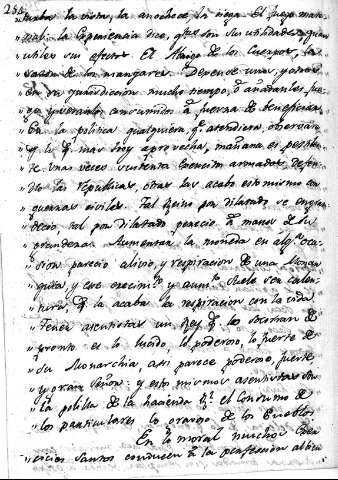 254
turba la vista, la ancelece, la ciega. El fuego mate-
rial: la Experiencia dice, q.e son su utilidades, quan
utiles sus efectos. El Abrigo de los Cuerpos, la
sazon de los manjares. Depende uno, y otro
en su juridiccion mucho tiempo, o añadanles fue
go y veranlos consumidos à fuerza de beneficios.
En la politica qualquiera q.e atendiera, observará
q.e lo q.e mas hoy aprovecha, mañana es peste.
Unas veces sustenta exercitos armados defen
dio la republica, otras las acaba esto mismo con
guerras civiles. Tal Reino por dilatado se engran
decio, tal por dilatado perecio à manos de su
grandeza. Aumentar la moneda en alg.a oca
sion parecio alivio, y respiracion de una Monar
quia, y ese crecim.to y aum.to suele ser calen
tura, q.e la acaba la respiracion con la vida.
Tener asentistas un Rey q.e lo socorran de
pronto es lo lucido, lo poderoso, lo fuerte de
su Monarchia, asi parece poderoso, fuerte
y gran Señor: y estos mismos asentistas son
la polilla de la hacienda R.l el Consumo de
los particulares lo gravoso de los Pueblos.
En lo moral muchos Exer
cicios santos conducen à la perfeccion al vicio